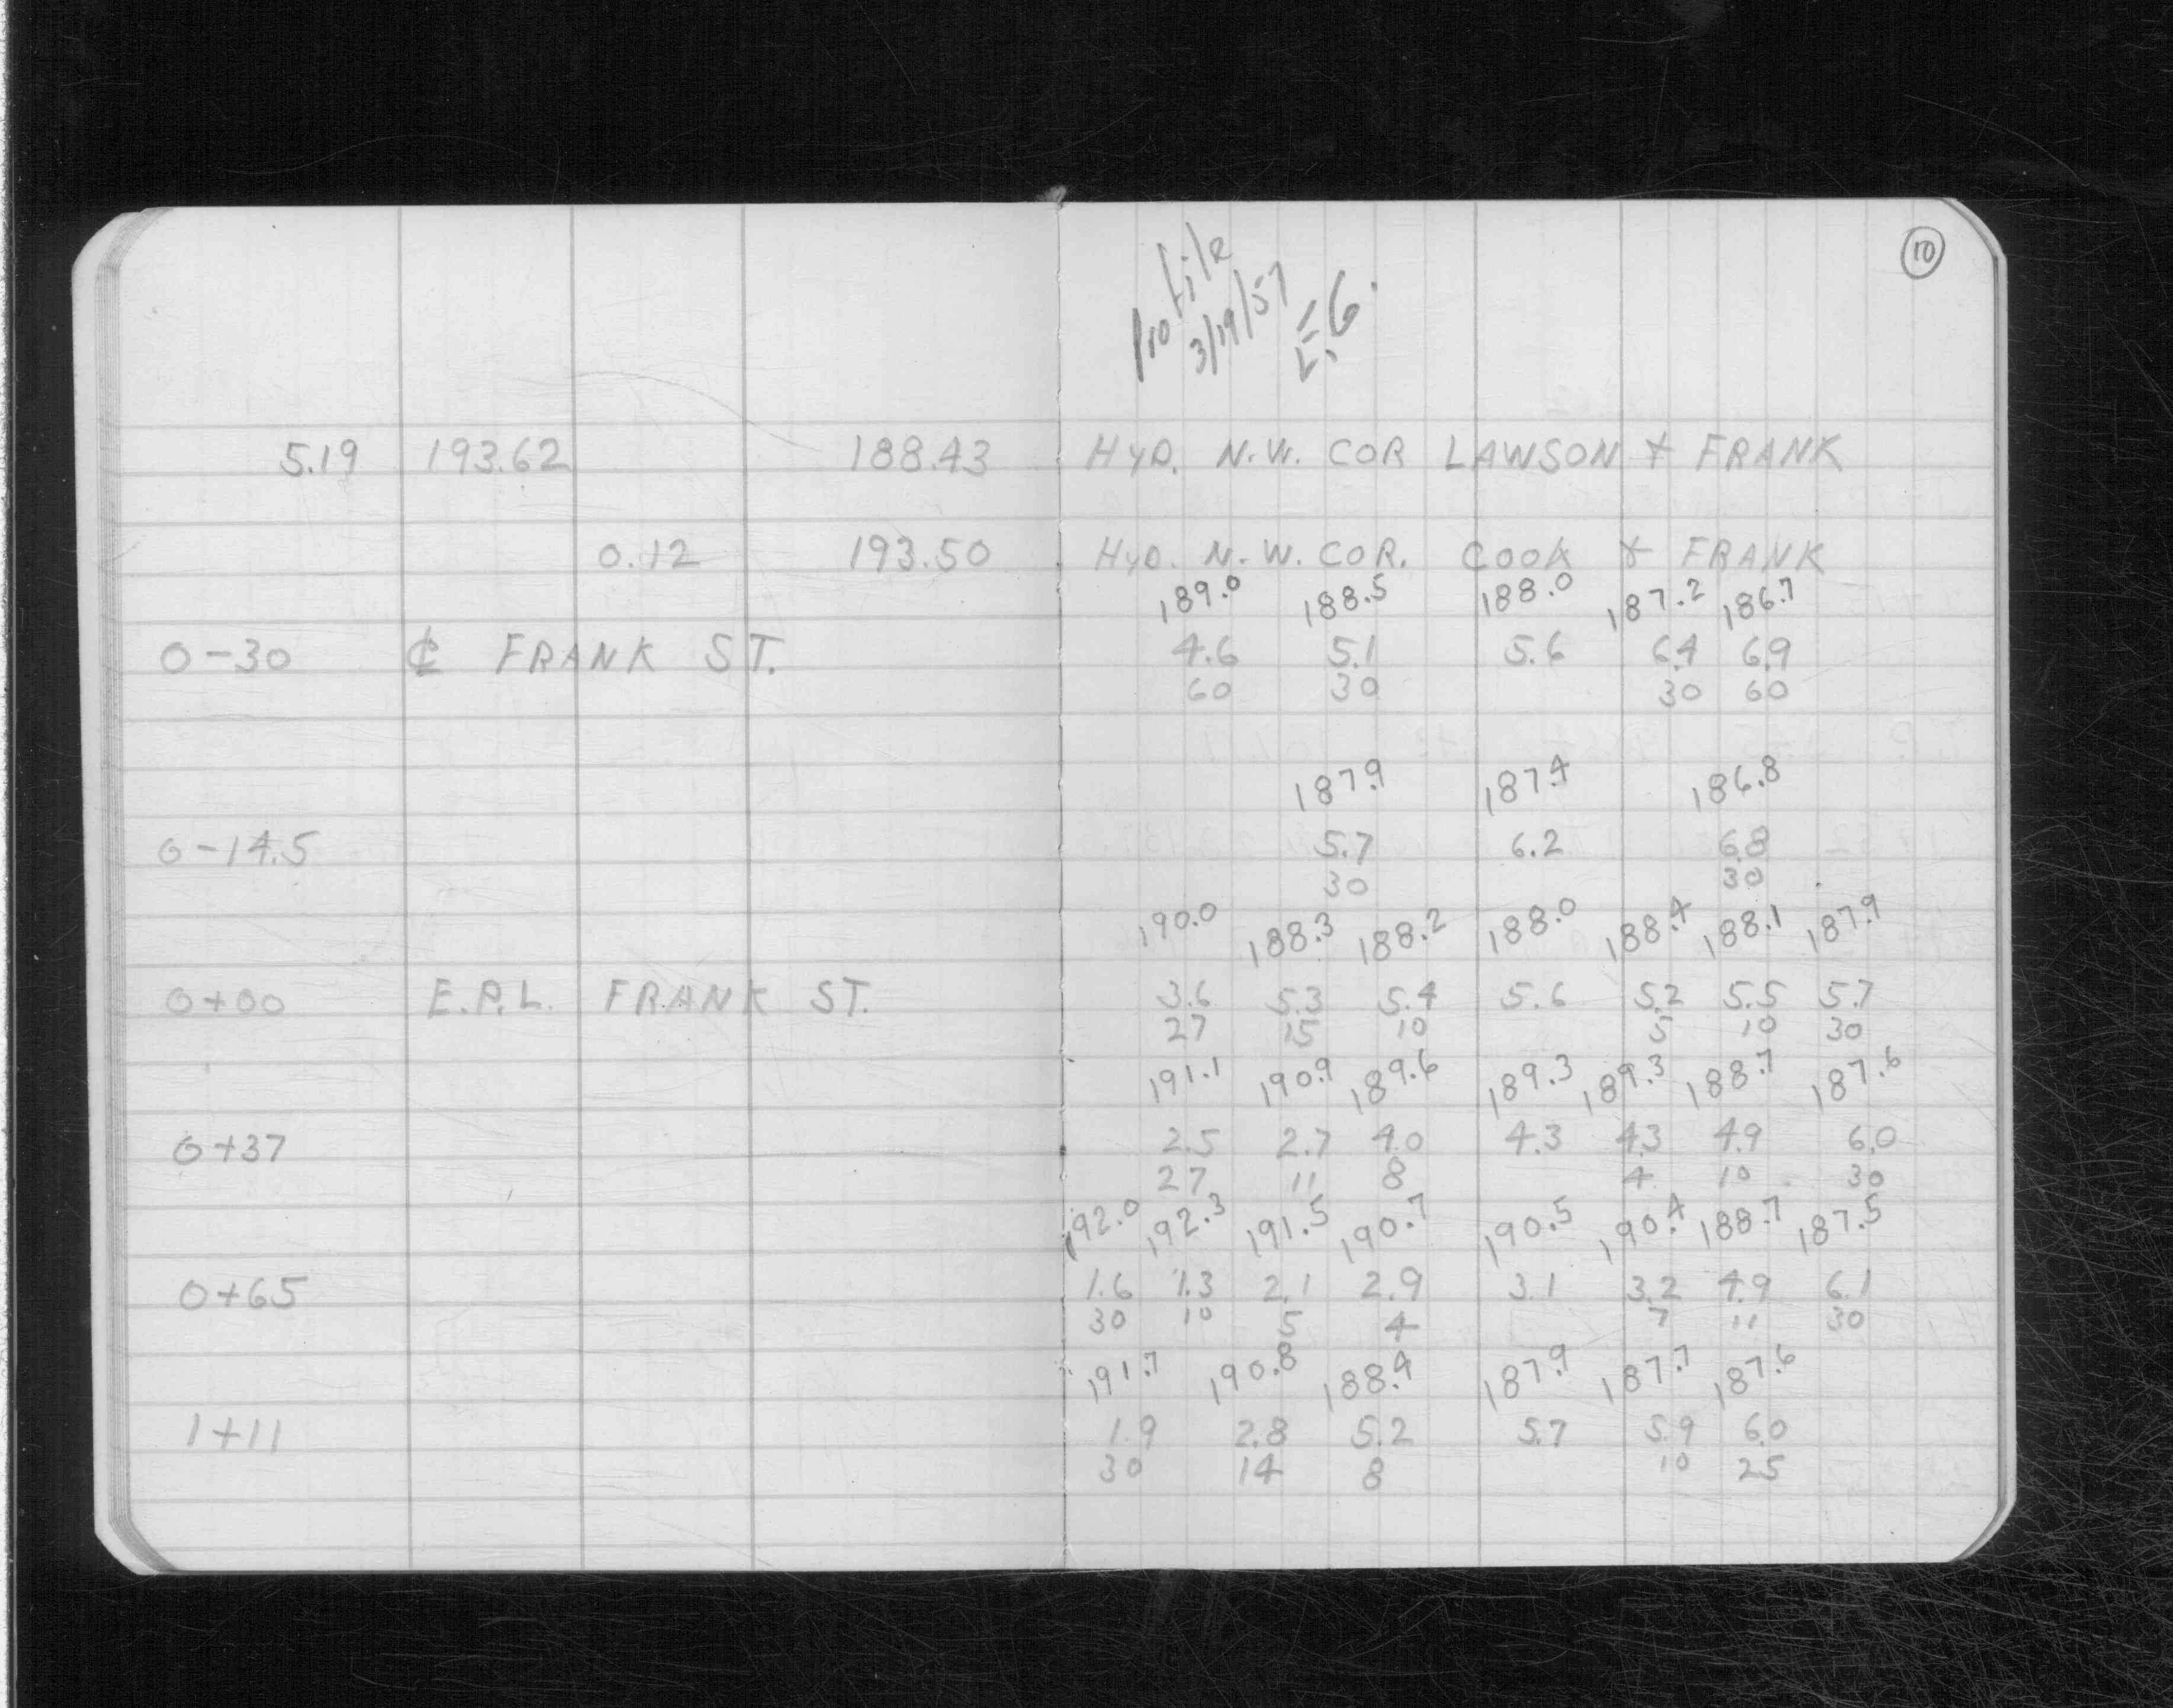 10
Profile
3/19/57
5.19 193.62 188.43 HYD. N.W. COR LAWSON & FRANK
0.12 193.50 HYD. N.W. COR. COOK & FRANK
189.0 188.5 188.0 187.2 186.7
0-30 ℄ FRANK ST. 4.6 5.1 5.6 6.4 6.9
60 30 30 60
187.9 187.4 186.8
0-14.5 5.7 6.2 6.8
30 30
190.0 188.3 188.2 188.0 188.4 188.1 187.9
0+00 E.P.L. FRANK ST. 3.6 5.3 5.4 5.6 5.2 5.5 5.7
27 15 10 5 10 30
191.1 190.9 189.6 189.3 189.3 188.7 187.6
0+37 2.5 2.7 4.0 4.3 4.3 4.9 6.0
27 11 8 4 10 30
192.0 192.3 191.5 190.7 190.5 190.4 188.7 187.5
0+65 1.6 1.3 2.1 2.9 3.1 3.2 4.9 6.1
30 10 5 4 7 11 30
191.7 190.8 188.4 187.9 187.7 187.6
1+11 1.9 2.8 5.2 5.7 5.9 6.0
30 14 8 10 25